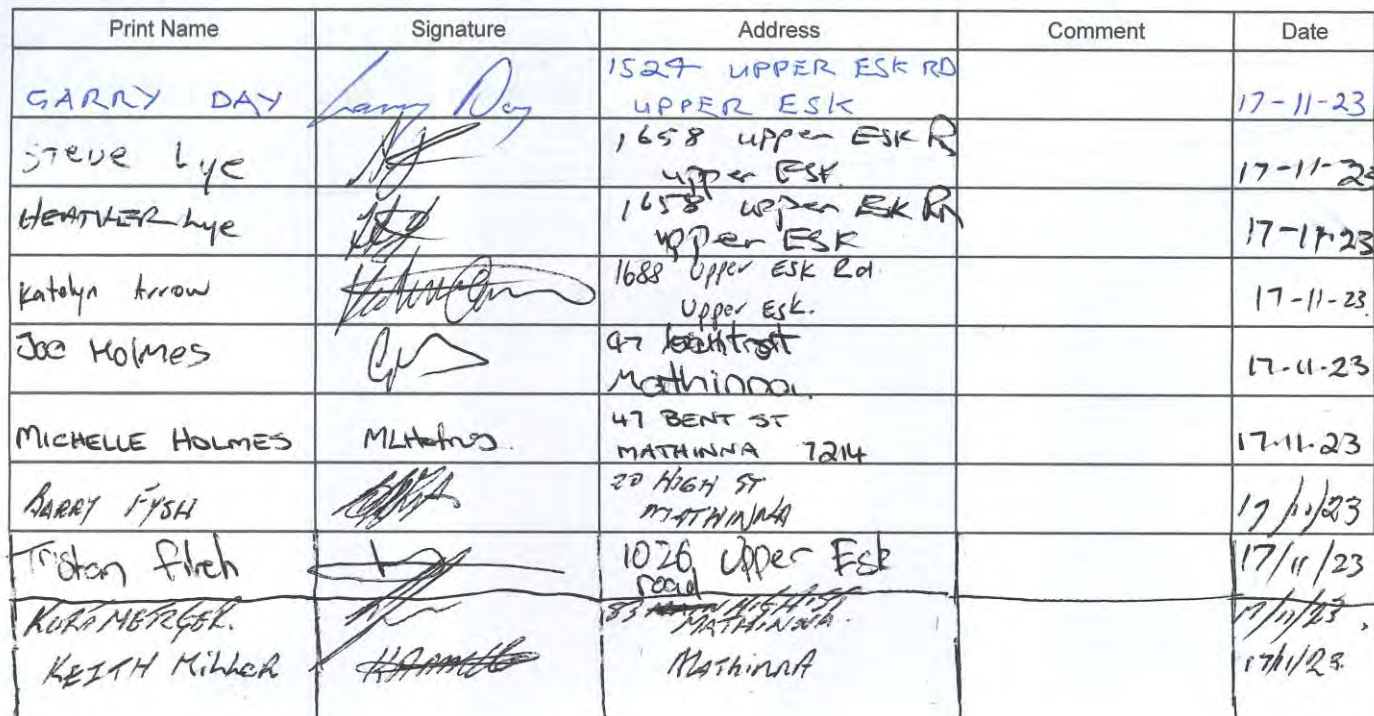 Print Name Signature Address Comment Date
1524 UPPER ESK RD
GARRY DAY Garry Day UPPER ESK 17-11-23
Steve Lye 1658 upper ESK R
upper ESK 17-11-23
HEATHER Lye 1658 upper ESK Rd
upper ESK 17-11-23
Katelyn Arrow 1688 Upper Esk Rd.
Upper Esk. 17-11-23
Joe Holmes 47
Mathinna 17-11-23
MICHELLE HOLMES MLHolmes 47 BENT ST
MATHINNA 7214 17.11.23
BARRY FYSH 20 HIGH ST
MATHINNA 17/11/23
Tristan 1026 Upper Esk
road 17/11/23
83 HIGH ST
MATHINNA. 17/11/23
KEITH MILLER MATHINNA 17/11/23